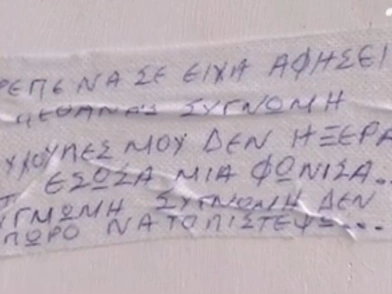 ΡΕΠΕ ΝΑ ΣΕ ΕΙΧΑ ΑΦΗΣΕΙ
ΠΕΘΑΝΑΣ ΣΥΓΝΩΜΗ
ΜΟΥ ΔΕΝ ΗΞΕΡΑ
ΕΣΩΣΑ ΜΙΑ ΦΩΝΙΣΑ...
ΓΜΩΜΗ ΣΥΓΝΩΜΗ ΔΕΝ
ΠΩΡΟ ΝΑ ΤΟ ΠΙΣΤΕΨΩ...